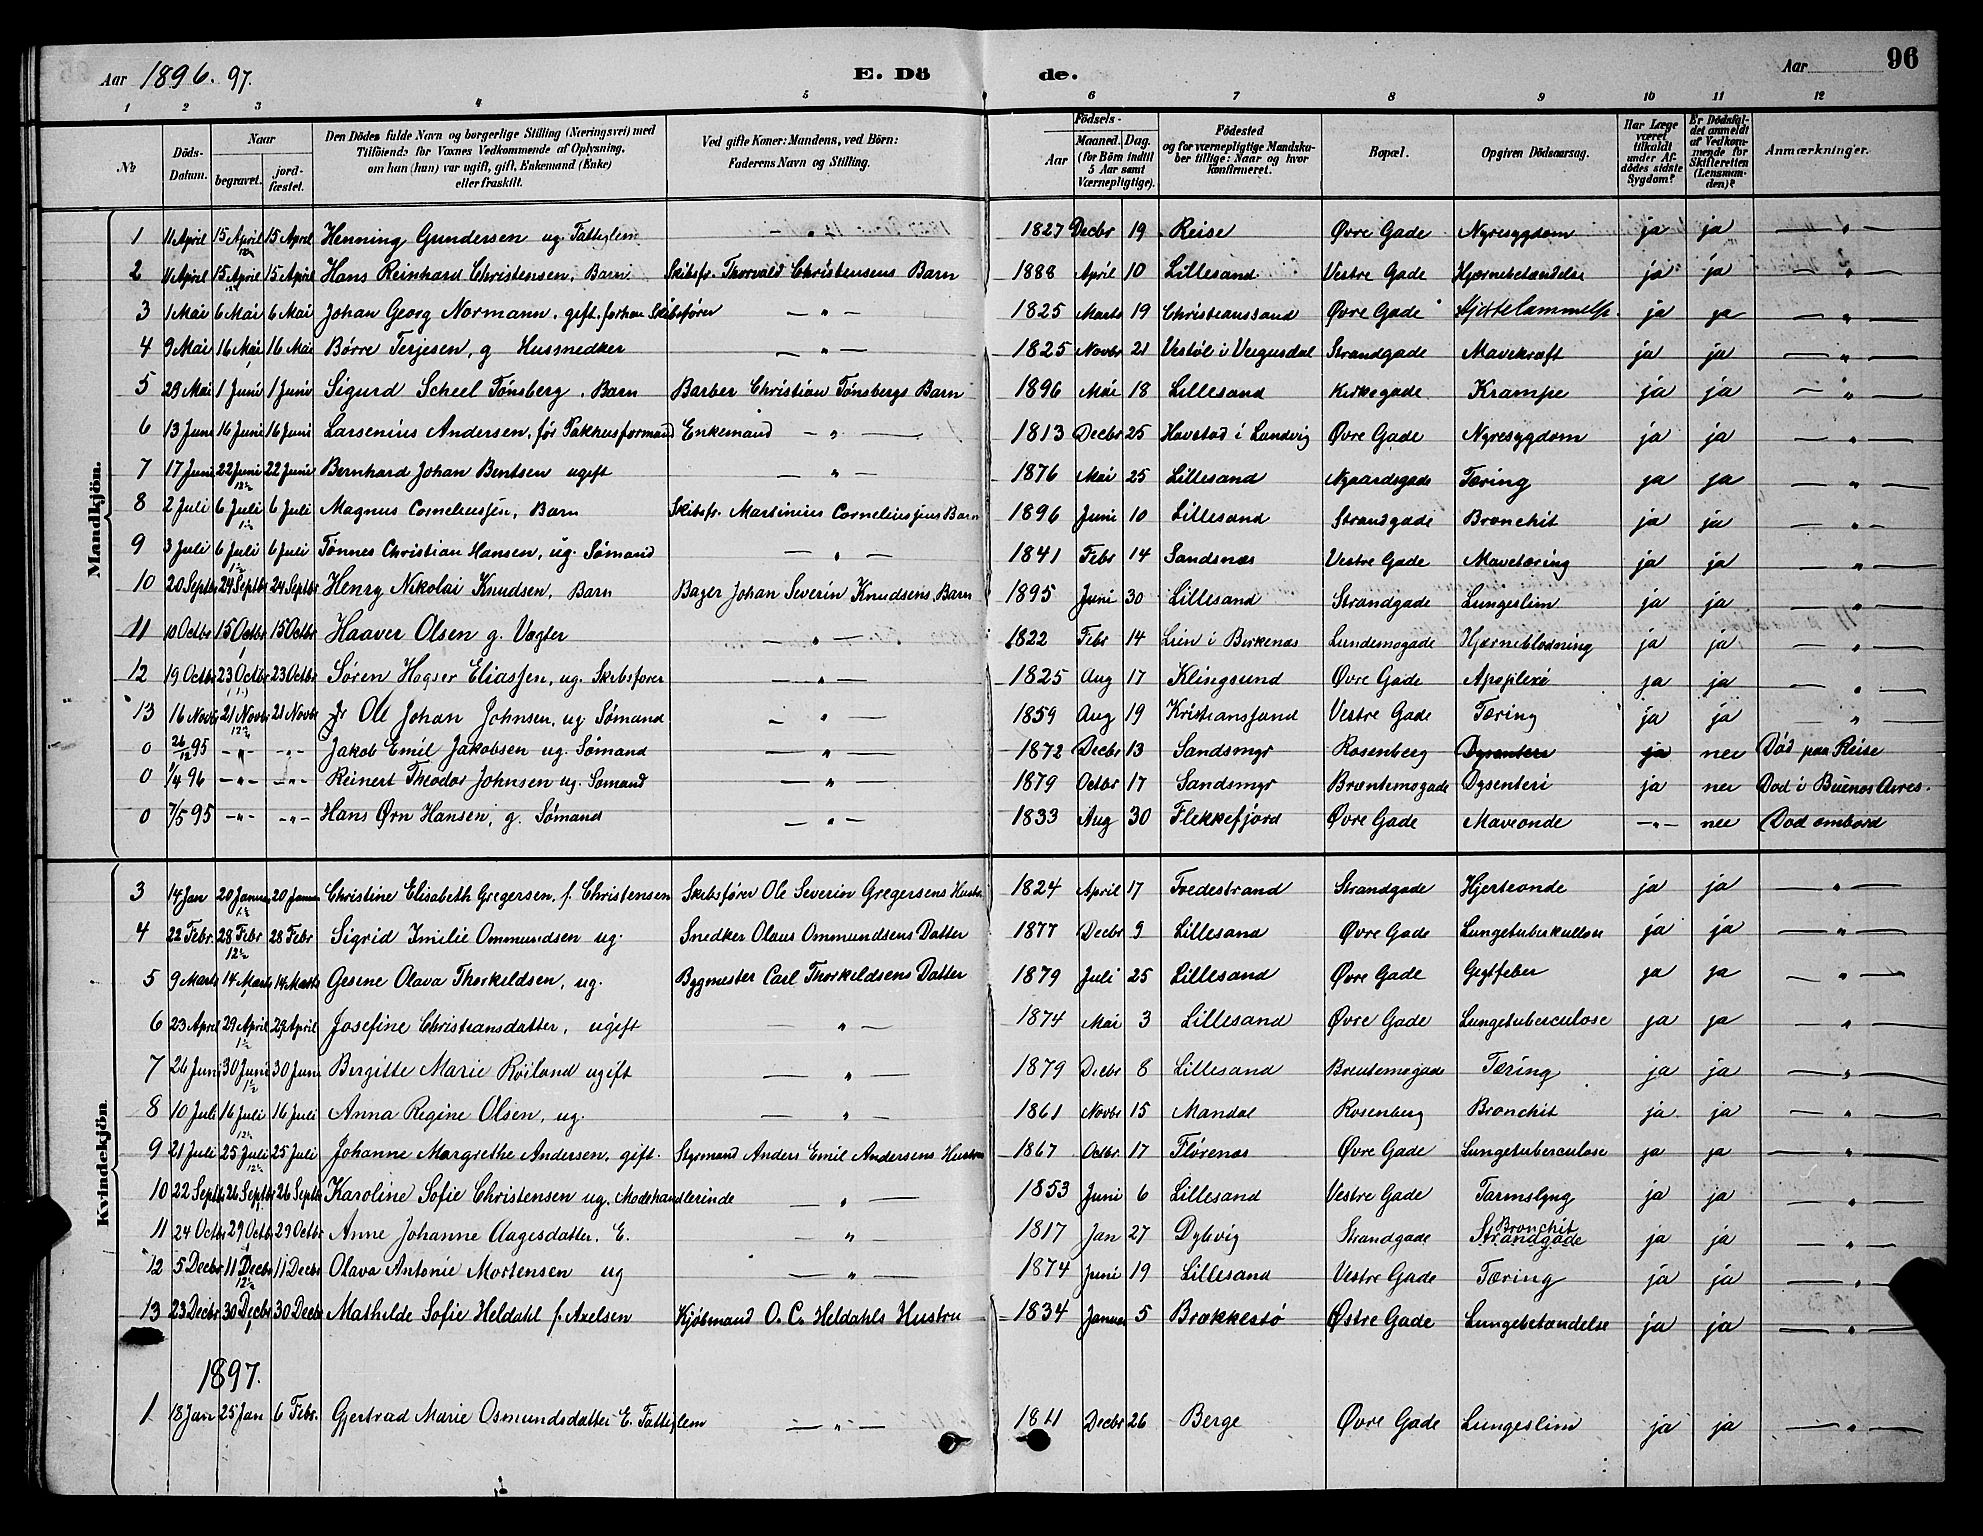 Aar 1896. 97. E. Dö de. Aar 96
1 2 3 4 5 6 7 8 9 10 11 12
№ Döds-Datum. Naar begravet. jord-fæstet. Den Dödes fulde Navn og borgerlige Stilling (Næringsvei) med Tilföiende for Voxnes Vedkommende af Oplysning, om han (hun) var ugift, gift, Enkemand (Enke) eller fraskilt. Ved gifte Koner: Mandens, ved Börn: Faderens Navn og Stilling. Födsels- Aar Maaned. (for Börn indtil 5 Aar samt Værnepligtige). Dag. Födested og for værnepligtige Mandskaber tillige: Naar og hvor konfirmeret. Bopæl. Opgiven Dödsaarsag. Har Læge været tilkaldt under Afdödes sidste Sygdom? Er Dödsfaldet anmeldt af Vedkommende for Skifteretten (Lensmanden)? Anmærkninger.
Mandkjön.
1 11 April 15 April 15 April Henning Gundersen ug. Fattiglem — " — 1827 Decbr 19 Reise Øvre Gade Nyresygdom ja ja — " —
2 11 April 15 April 15 April Hans Reinhard Christensen, Barn Skibsfr. Thorvald Christensens Barn 1888 April 10 Lillesand Vestre Gade Hjernebetændelse ja ja — " —
3 1 Mai 6 Mai 6 Mai Johan Georg Normann, gift. forhen Skibsfører — " — 1825 Marts 19 Christianssand Øvre Gade Hjertelammelse. ja ja — " —
4 9 Mai 16 Mai 16 Mai Børre Terjesen, g Husmedker — " — 1825 Novbr 21 Vestøl i Veigusdal Strandgade Mavekræft ja ja — " —
5 29 Mai 1 Juni 1 Juni Sigurd Scheel Tønsberg, Barn Barber Christian Tønsbergs Barn 1896 Mai 18 Lillesand Kirkegade Krampe ja ja — " —
6 13 Juni 16 Juni 16 Juni Larsenius Andersen, før Pakhusformand Enkemand — " — 1813 Decbr 25 Havstad i Landvig Øvre Gade Nyresygdom ja ja — " —
7 17 Juni 22 Juni 22 Juni Bernhard Johan Bentsen ugift — " — 1876 Mai 25 Lillesand Nygaardsgade Tæring ja ja — " —
8 2 Juli 6 Juli 6 Juli Magnus Corneliussen, Barn Skibsfr. Martinius Corneliussens Barn 1896 Juni 10 Lillesand Strandgade Bronchit ja ja — " —
9 3 Juli 6 Juli 6 Juli Tønnes Christian Hansen, ug. Sømand — " — 1841 Febr 14 Sandsnæs Vestre Gade Mavetæring ja ja — " —
10 20 Septbr 24 Septbr 24 Septbr Henry Nikolai Knudsen, Barn Bager Johan Severin Knudsens Barn 1895 Juni 30 Lillesand Strandgade Lungeslim ja ja — " —
11 10 Octbr 15 Octbr 15 Octbr Haaver Olsen g. Vægter — " — 1822 Febr 14 Lien i Birkenæs Lundemogade Hjerneblødning ja ja — " —
12 19 Octbr 23 Octbr 23 Octbr Søren Eliassen, ug. Skibsfører — " — 1825 Aug 17 Klingsund Øvre Gade Apoplexi ja ja — " —
13 16 Novbr 21 Novbr 21 Novbr Ole Johan Johnsen, ug. Sømand — " — 1859 Aug 19 Kristianssand Vestre Gade Tæring ja ja — " —
0 26/12 95 — " — — " — Jakob Emil Jakobsen ug. Sømand — " — 1872 Decbr 13 Sandsmyr Rosenberg Dysenteri ja nei Död paa Reise
0 1/4 96 — " — — " — Reinert Theodor Johnsen ug. Sømand — " — 1879 Octbr 17 Sandsmyr Brentemogade Dysenteri ja nei Død i Buenos Ayres.
0 7/5 95 — " — — " — Hans Ørn Hansen, g. Sømand — " — 1833 Aug 30 Flekkefjord Øvre Gade Maveonde — " — nei Død ombord
Kvindekjön
3 14 Jan 20 Januar 20 Januar Christine Elisabeth Gregersen, f. Christensen Skibsfører Ole Severin Gregersens Hustru 1824 April 17 Tvedestrand Strandgade Hjerteonde ja ja " —
4 22 Febr. 28 Febr 28 Febr Sigrid Emilie Ommundsen ug. Snedker Olaus Ommundsens Datter 1877 Decbr 9 Lillesand Øvre Gade Lungetuberkulose ja ja — " —
5 9 Marts 14 Marts 14 Marts Gesine Olava Thorkeldsen, ug. Bygmester Carl Thorkeldsens Datter 1879 Juli 25 Lillesand Øvre Gade Gigtfeber ja ja — " —
6 23 April 29 April 29 April Josefine Christiansdatter, ugift — " — 1874 Mai 3 Lillesand Øvre Gade Lungetuberculose ja ja — " —
7 26 Juni 30 Juni 30 Juni Bergitte Marie Røiland ugift — " — 1879 Decbr 8 Lillesand Brentemogade Tæring ja ja — " —
8 10 Juli 16 Juli 16 Juli Anna Regine Olsen, ug. — " — 1861 Novbr 15 Mandal Rosenberg Bronchit ja ja — " —
9 21 Juli 25 Juli 25 Juli Johanne Margrethe Andersen, gift. Styrmand Anders Emil Andersens Hustru 1867 Octbr. 17 Flørenæs Øvre Gade Lungetuberculose ja ja — " —
10 22 Septbr 26 Septbr 26 Septbr Karoline Sofie Christensen ug. Modehandlerinde — " — 1853 Juni 6 Lillesand Vestre Gade Tarmslyng ja ja — " —
11 24 Octbr 29 Octbr 29 Octbr Anne Johanne Aagesdatter. E. — " — 1817 Jan 27 Dybvig Strandgade Bronchit Strandgade ja ja — " —
12 5 Decbr 11 Decbr 11 Decbr Olava Antonie Mortensen ug — " — 1874 Juni 19 Lillesand Vestre Gade Tæring ja ja — " —
13 23 Decbr 30 Decbr 30 Decbr Mathilde Sofie Heldahl f. Axelsen Kjøbmand O. C. Heldahls Hustru 1834 Januar 5 Brækkestø Østre Gade Lungebetændelse ja ja — " —
1897.
1 18 Jan 25 Jan 6 Febr. Gjertrud Marie Osmundsdatter E. Fattiglem — " — 1811 Decbr 26 Berge Øvre Gade Lungeslim ja ja — " —